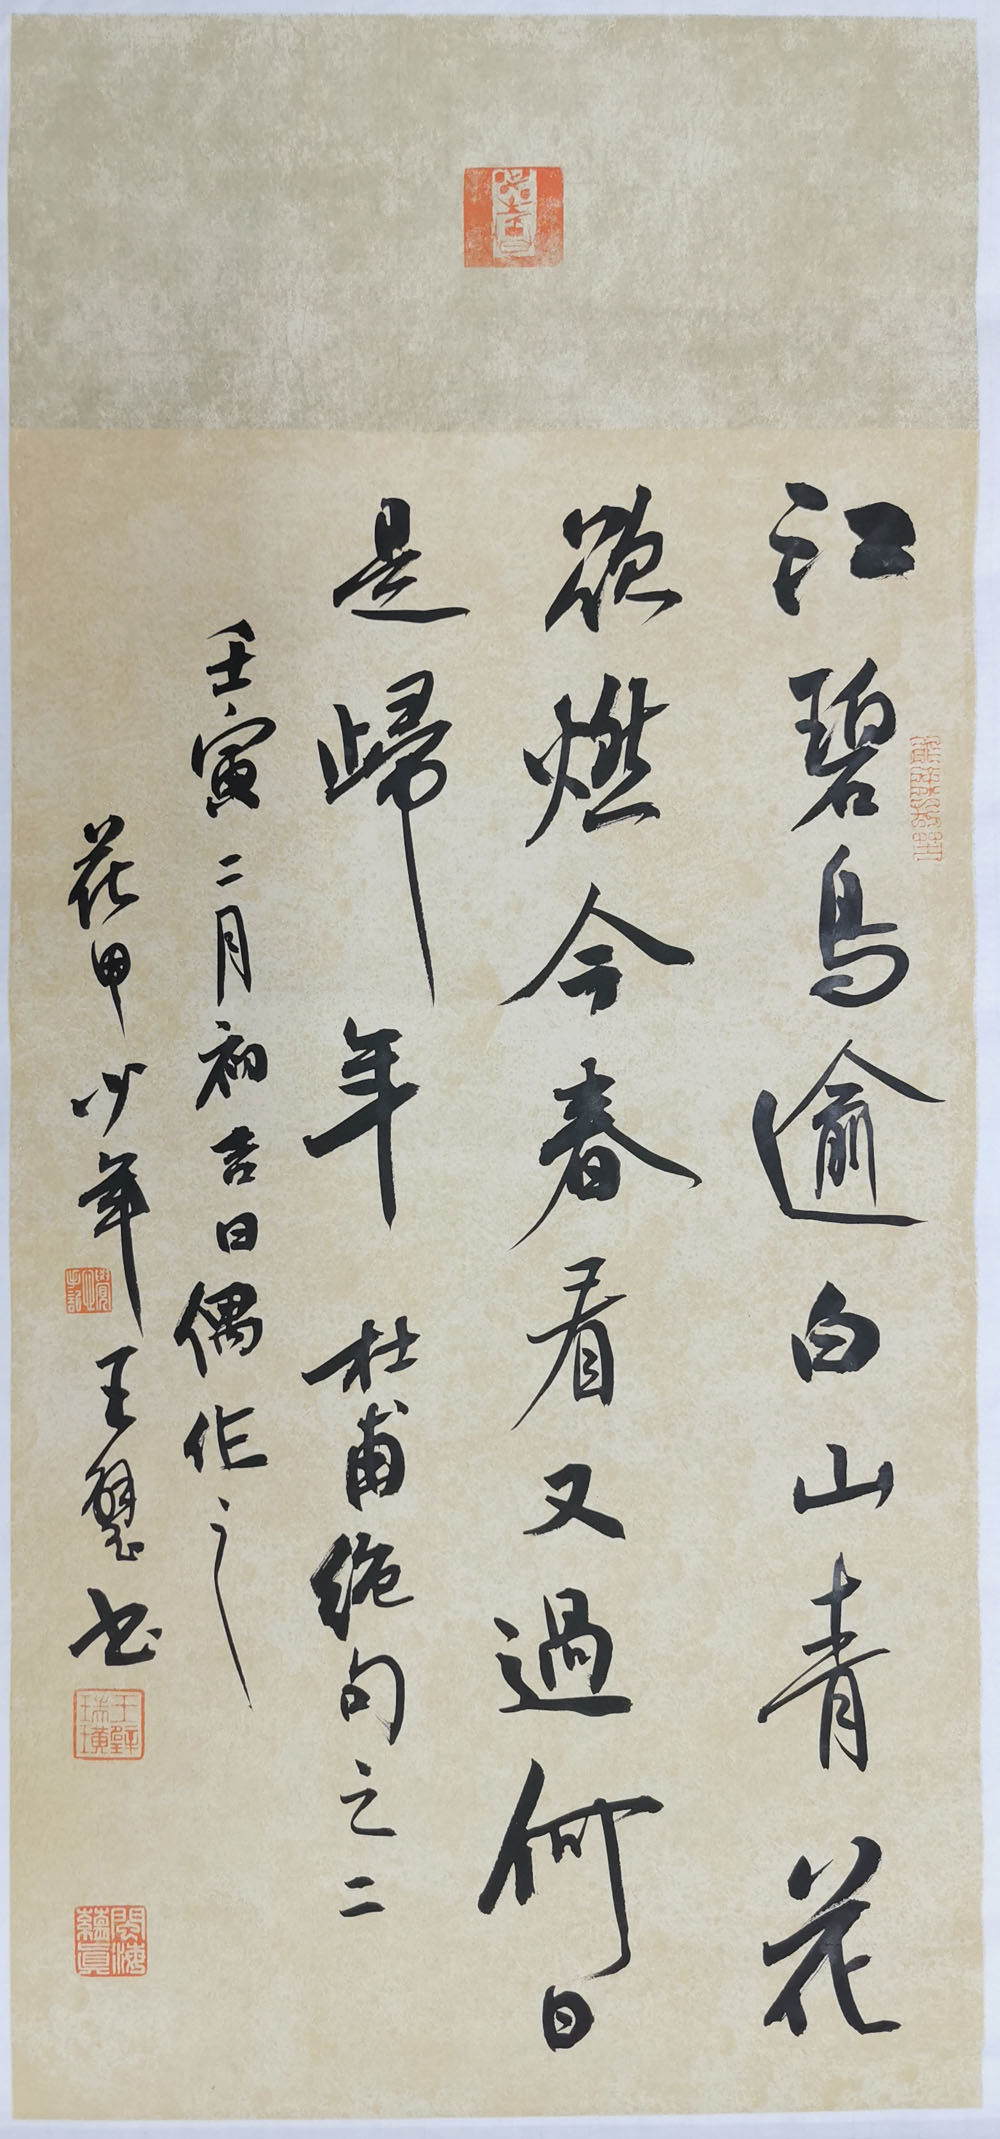 江碧鳥逾白山青花
欲燃今春看又過何日
是歸年 杜甫绝句之二
壬寅二月初吉日偶作之
花甲少年王璧书
王璧
瑞璜
閩海
蘊真